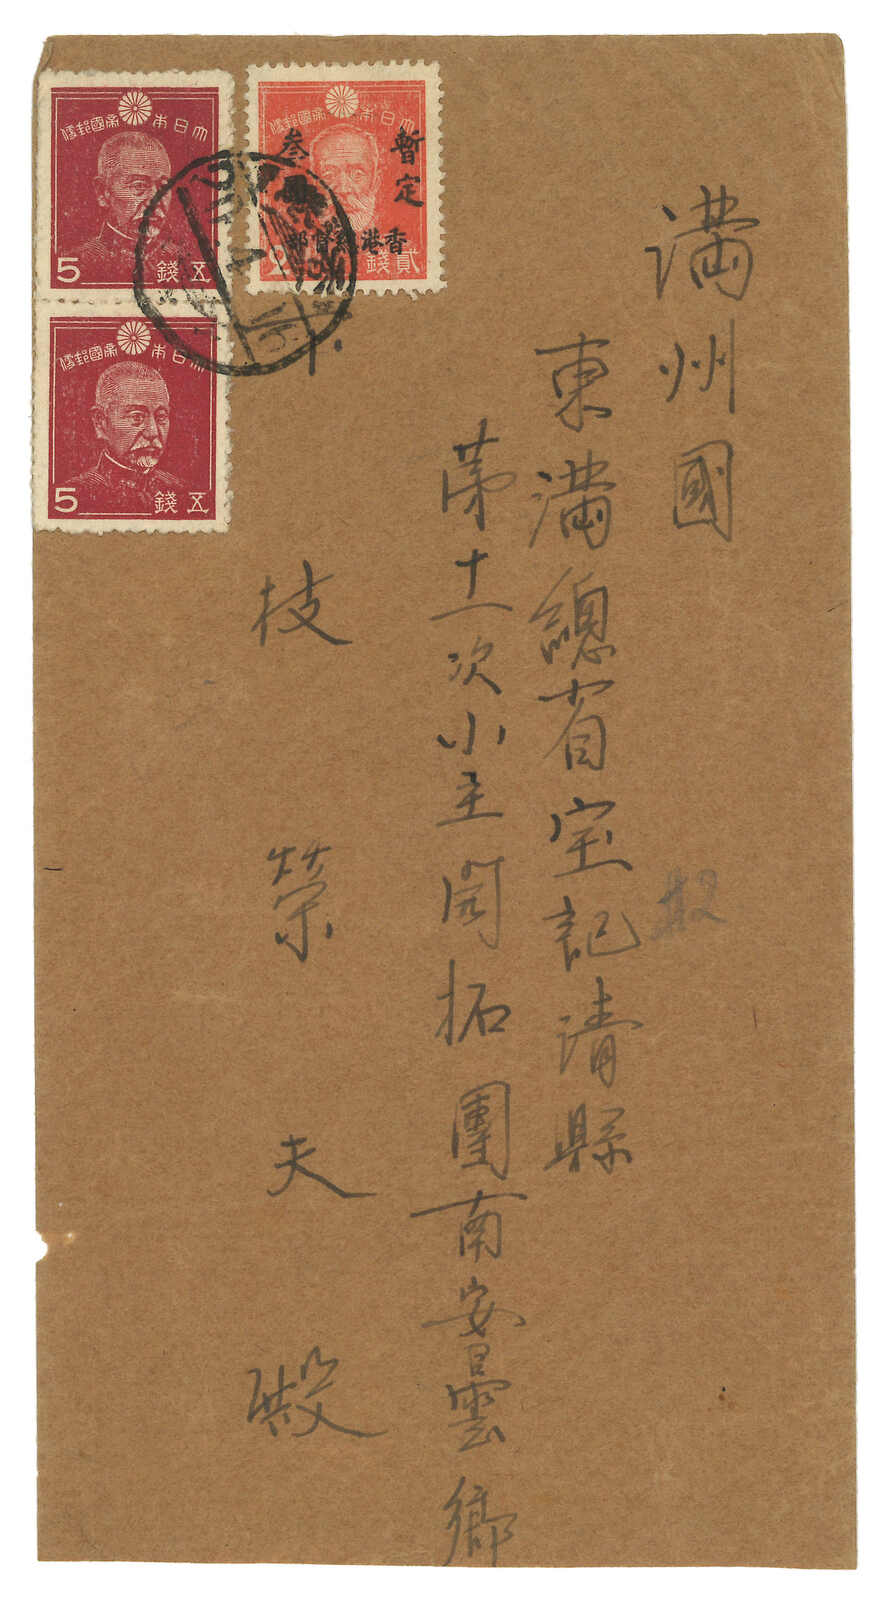 満州国
東満總省宝記清縣
第十一次小主開拓團南安曇郷
枝榮夫殿
殿
大日本帝國郵便
5 五錢
大日本帝國郵便
5 五錢
大日本帝國郵便
貳錢
暫定
叁圓
香港總督部